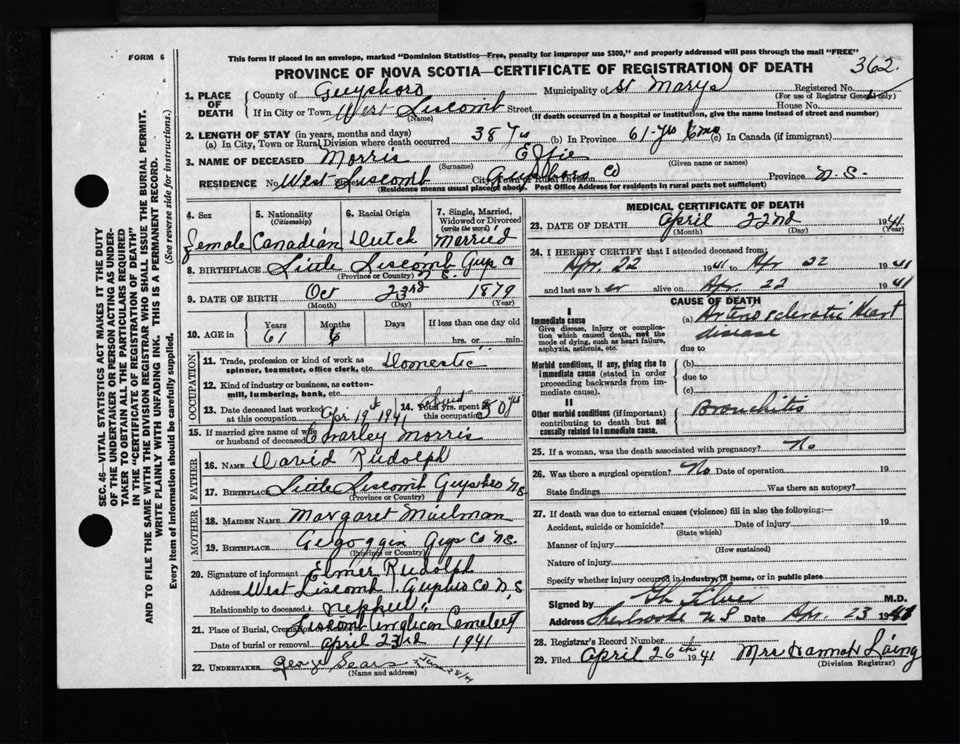 FORM 6
This form if placed in an envelope, marked "Dominion Statistics—Free, penalty for improper use $300," and properly addressed will pass through the mail "FREE"
PROVINCE OF NOVA SCOTIA—CERTIFICATE OF REGISTRATION OF DEATH 362.
SEC. 46—VITAL STATISTICS ACT MAKES IT THE DUTY
OF THE UNDERTAKER OR PERSON ACTING AS UNDER-
TAKER TO OBTAIN ALL THE PARTICULARS REQUIRED
IN THE "CERTIFICATE OF REGISTRATION OF DEATH"
AND TO FILE THE SAME WITH THE DIVISION REGISTRAR WHO SHALL ISSUE THE BURIAL PERMIT.
WRITE PLAINLY WITH UNFADING INK. THIS IS A PERMANENT RECORD.
Every item of information should be carefully supplied. (See reverse side for instructions.)
1. PLACE OF DEATH County of Guysboro Municipality of St Marys Registered No.
(For use of Registrar General only)
If in City or Town West Liscomb Street House No.
(Name) (If death occurred in a hospital or institution, give the name instead of street and number)
2. LENGTH OF STAY (in years, months and days)
(a) In City, Town or Rural Division where death occurred 38 Yrs (b) In Province 61-Yrs 6mo (c) In Canada (if immigrant)
3. NAME OF DECEASED Morris Effie
(Surname) (Given name or names)
RESIDENCE No. West Liscomb Guysboro Co Province N.S.
(Residence means usual place of abode. Post Office Address for residents in rural parts not sufficient)
4. Sex 5. Nationality (Citizenship) 6. Racial Origin 7. Single, Married, Widowed or Divorced (write the word)
female Canadian Dutch Married
8. BIRTHPLACE Little Liscomb Guys Co N.S.
(Province or Country)
9. DATE OF BIRTH Oct 23rd 1879
(Month) (Day) (Year)
10. AGE in Years Months Days If less than one day old
61 6 hrs. or min.
OCCUPATION
11. Trade, profession or kind of work as
spinner, teamster, office clerk, etc. Domestic
12. Kind of industry or business, as cotton-
mill, lumbering, bank, etc.
13. Date deceased last worked at this occupation Apr 19th 1941 14. Total yrs. spent in this occupation 50 yrs
15. If married give name of wife
or husband of deceased Charley Morris
FATHER
16. NAME David Rudolph
17. BIRTHPLACE Little Liscomb Guysboro NS
(Province or Country)
MOTHER
18. MAIDEN NAME Margaret Mailman
19. BIRTHPLACE Gegoggin Guys Co NS.
(Province or Country)
20. Signature of informant Elmer Rudolph
Address West Liscomb Guysboro Co N.S
Relationship to deceased Nephew
21. Place of Burial, Cremation Liscomb Anglican Cemetery
Date of burial or removal April 23rd 1941
22. UNDERTAKER George Sears
(Name and address)
MEDICAL CERTIFICATE OF DEATH
23. DATE OF DEATH April 22nd 1941
(Month) (Day) (Year)
24. I HEREBY CERTIFY that I attended deceased from:
Apr. 22 1941 to Apr 22 1941
and last saw her alive on Apr. 22 1941
CAUSE OF DEATH
I
Immediate cause
Give disease, injury or complica-
tion which caused death, not the
mode of dying, such as heart failure,
asphyxia, asthenia, etc.
(a) Arteriosclerotic Heart
disease
due to
Morbid conditions, if any, giving rise to
immediate cause (stated in order
proceeding backwards from im-
mediate cause).
(b)
due to
(c)
II
Other morbid conditions (if important)
contributing to death but not
causally related to immediate cause.
Bronchitis
25. If a woman, was the death associated with pregnancy? No
26. Was there a surgical operation? No Date of operation 19
State findings Was there an autopsy?
27. If death was due to external causes (violence) fill in also the following:—
Accident, suicide or homicide? Date of injury 19
(State which)
Manner of injury
(How sustained)
Nature of injury
Specify whether injury occurred in industry, in home, or in public place
Signed by M.D.
Address Sherbrooke N S Date Apr. 23 1941
28. Registrar's Record Number
29. Filed April 26th 1941 Mrs Hannah Laing
(Division Registrar)